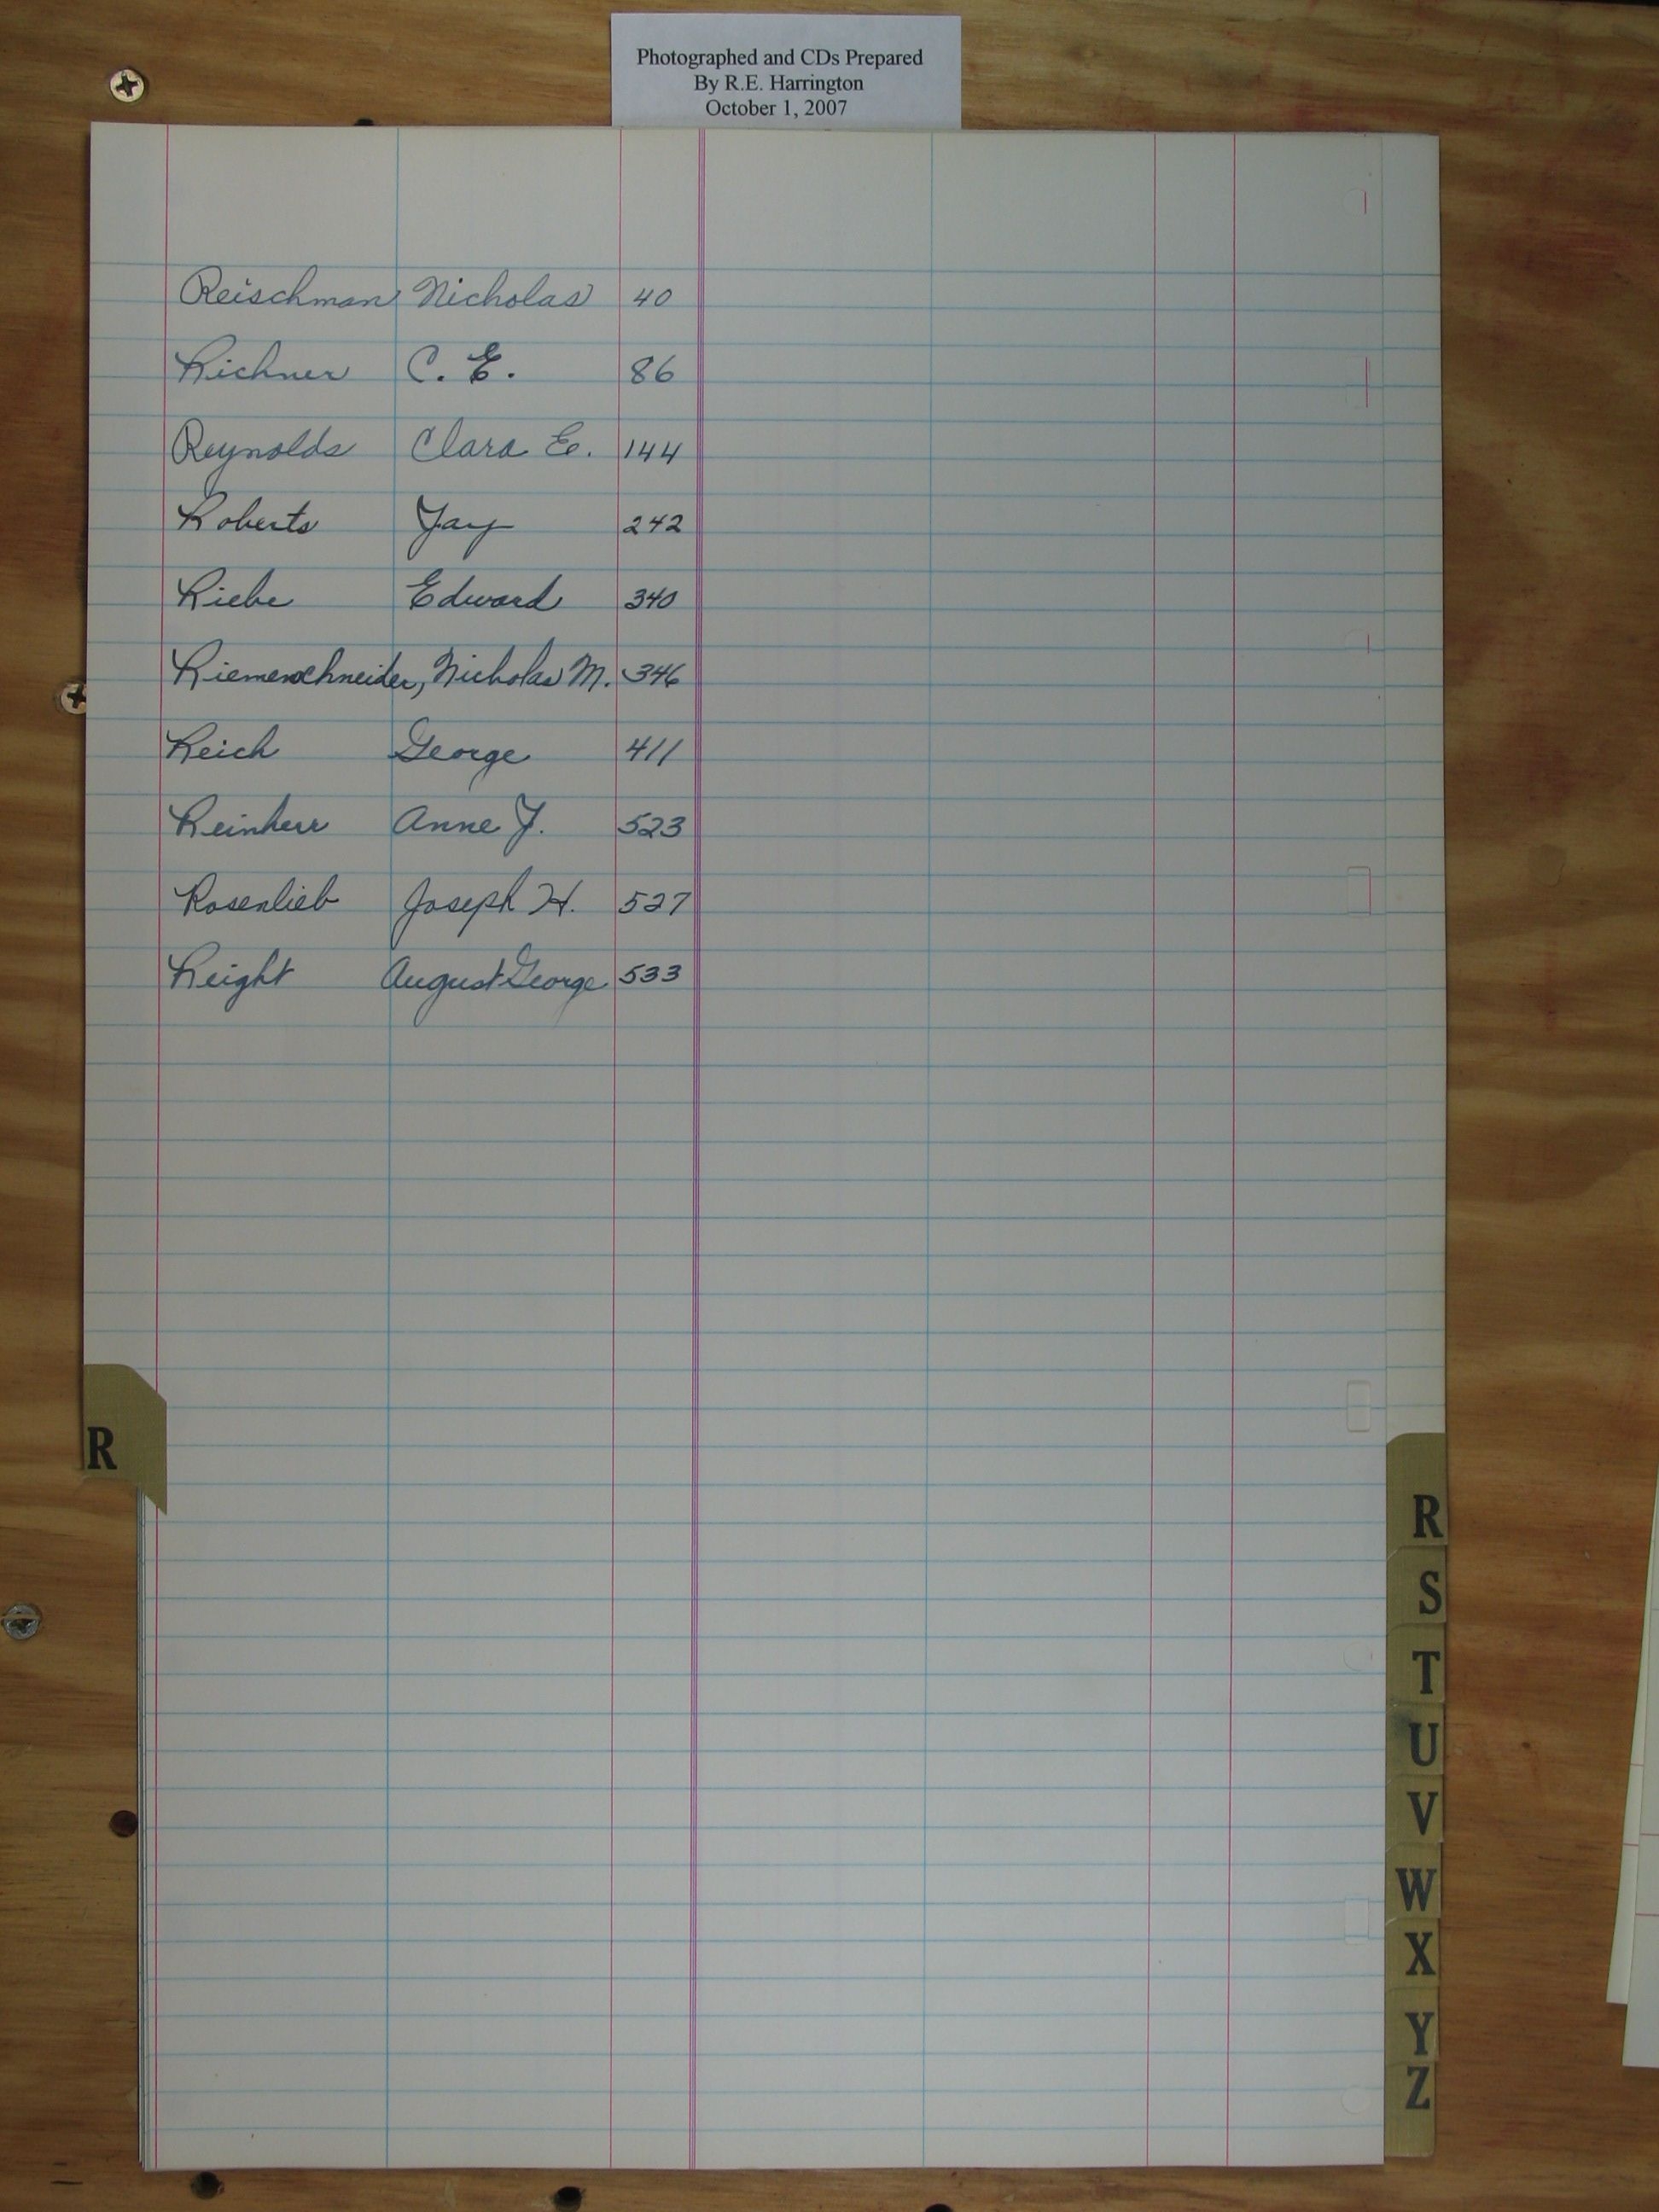 Photographed and CDs Prepared
By R.E. Harrington
October 1, 2007
Reischman Nicholas 40
Richner C. E. 86
Reynolds Clara E. 144
Roberts Jay 242
Riebe Edward 340
Riemenschneider, Nicholas M. 346
Reich George 411
Reinherr Anne J. 523
Rosenlieb Joseph H. 527
Reight August George 533
R
R
S
T
U
V
W
X
Y
Z